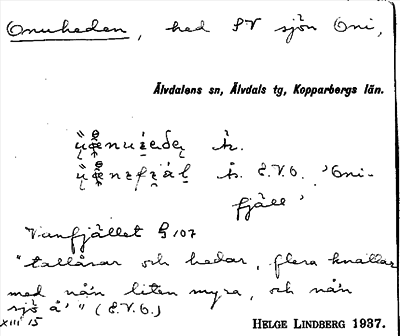 Onuheden, hed SV sjön Oni,
Älvdalens sn, Älvdals tg, Kopparbergs län.
h.
h. E.V.O. 'Oni-
fjäll'
Vanfjället § 107
"tallåsar och hedar, flera knallar
med nån liten myra, och nån
sjö å'" (E.V.O.)
XIII 15
HELGE LINDBERG 1937.